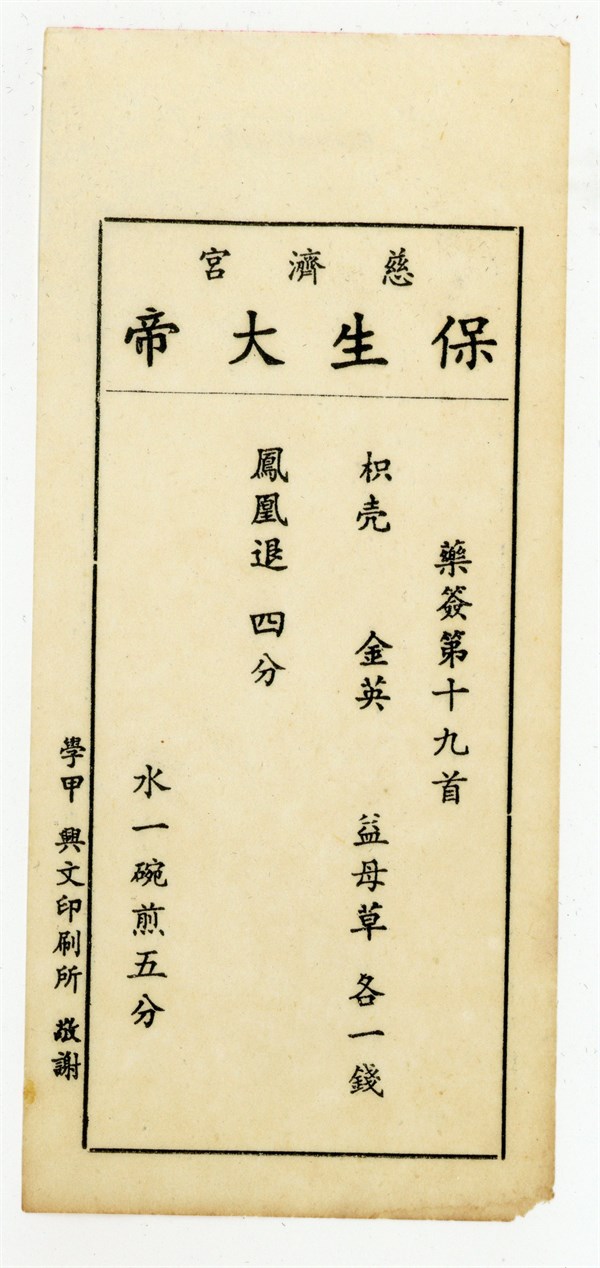 慈濟宮
保生大帝
藥簽第十九首
枳壳 金英 益母草 各一錢
鳳凰退 四分
水一碗煎五分
學甲 興文印刷所 敬謝